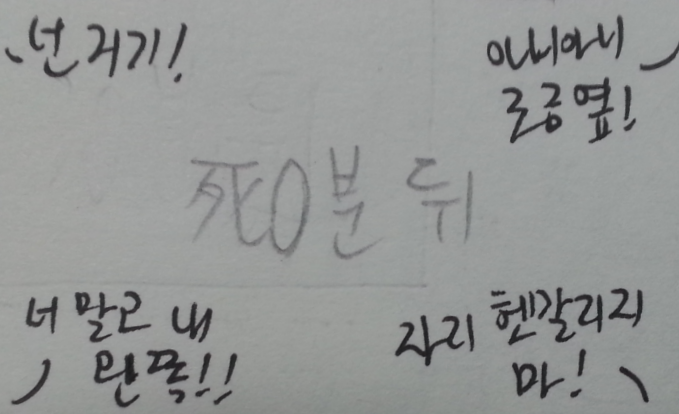 넌 거기!
아니아니
조금 옆!
死0분 뒤
너 말고 내
왼쪽!!
자리 헨갈리지
마!